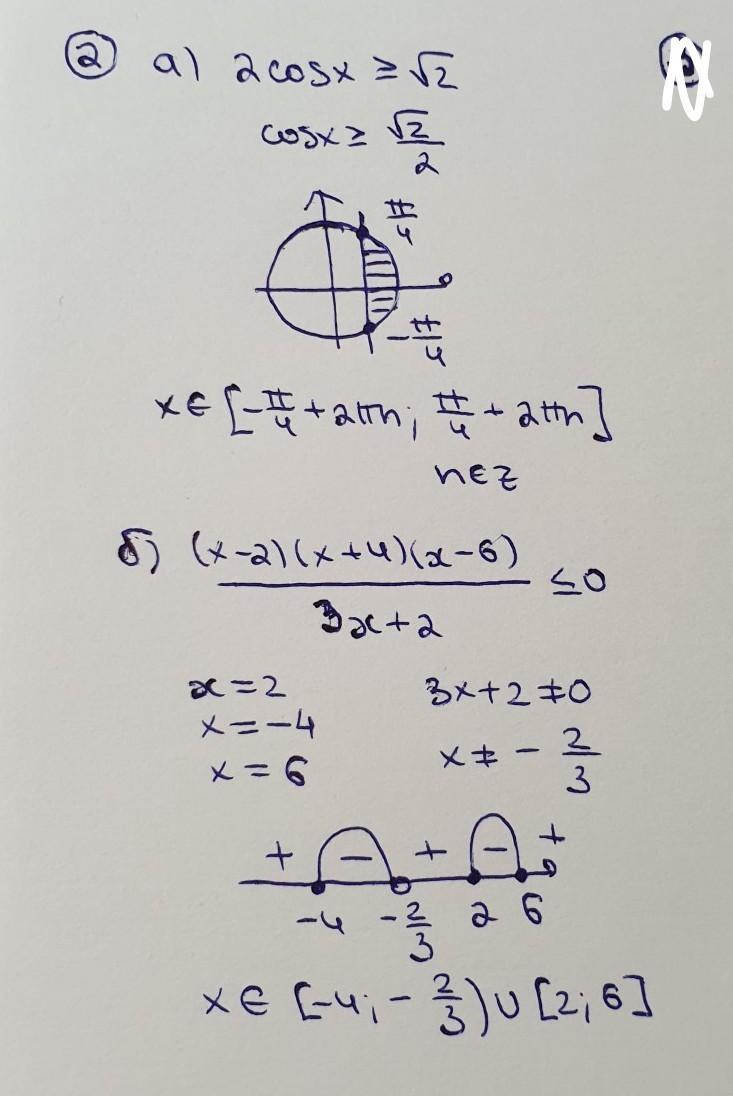 ② а) 2cosx ≥ √2
cosx ≥ √2/2
π/4
-π/4
x ∈ [-π/4 + 2πn; π/4 + 2πn]
n ∈ Z
б) (x-2)(x+4)(x-6)/(3x+2) ≤ 0
x = 2 3x+2 ≠ 0
x = -4 x ≠ -2/3
x = 6
+ - + - +
-4 -2/3 2 6
x ∈ [-4; -2/3) ∪ [2; 6]